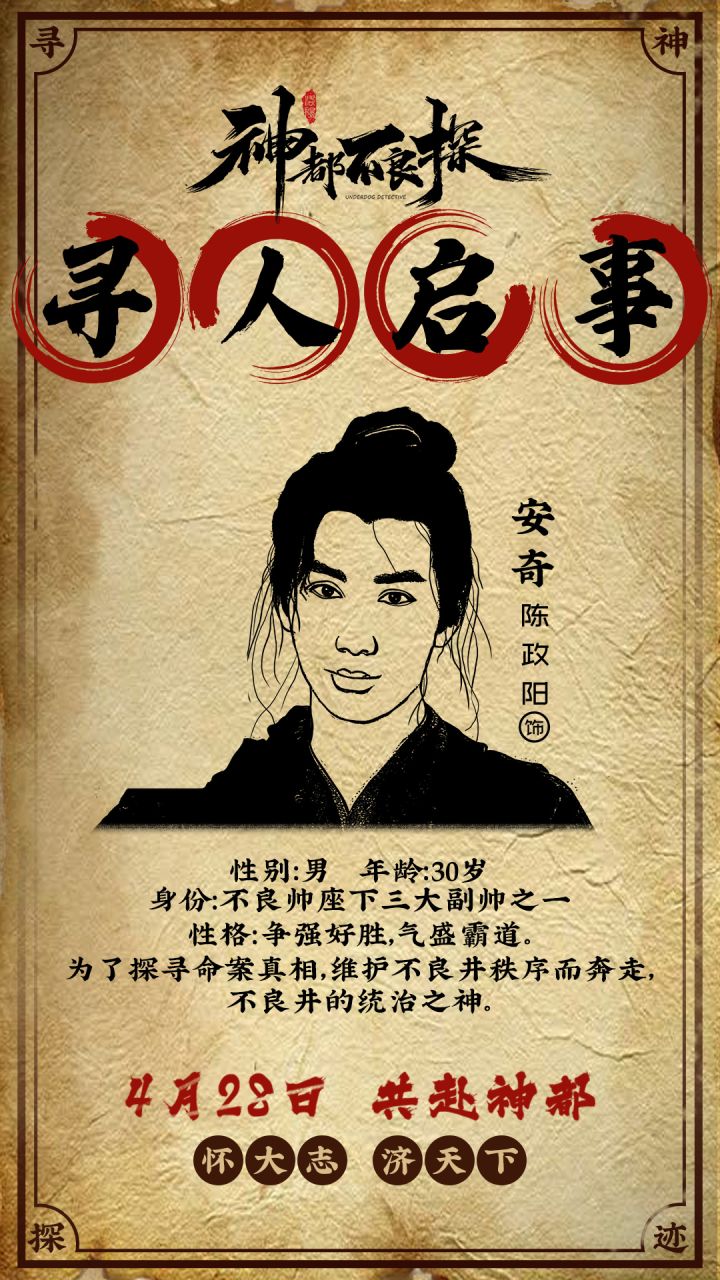 寻
神
神都不良探
UNDERDOG DETECTIVE
寻人启事
安奇
陈政阳
饰
性别:男 年龄:30岁
身份:不良帅座下三大副帅之一
性格:争强好胜,气盛霸道。
为了探寻命案真相,维护不良井秩序而奔走,
不良井的统治之神。
4月28日 共赴神都
怀大志 济天下
探
迹